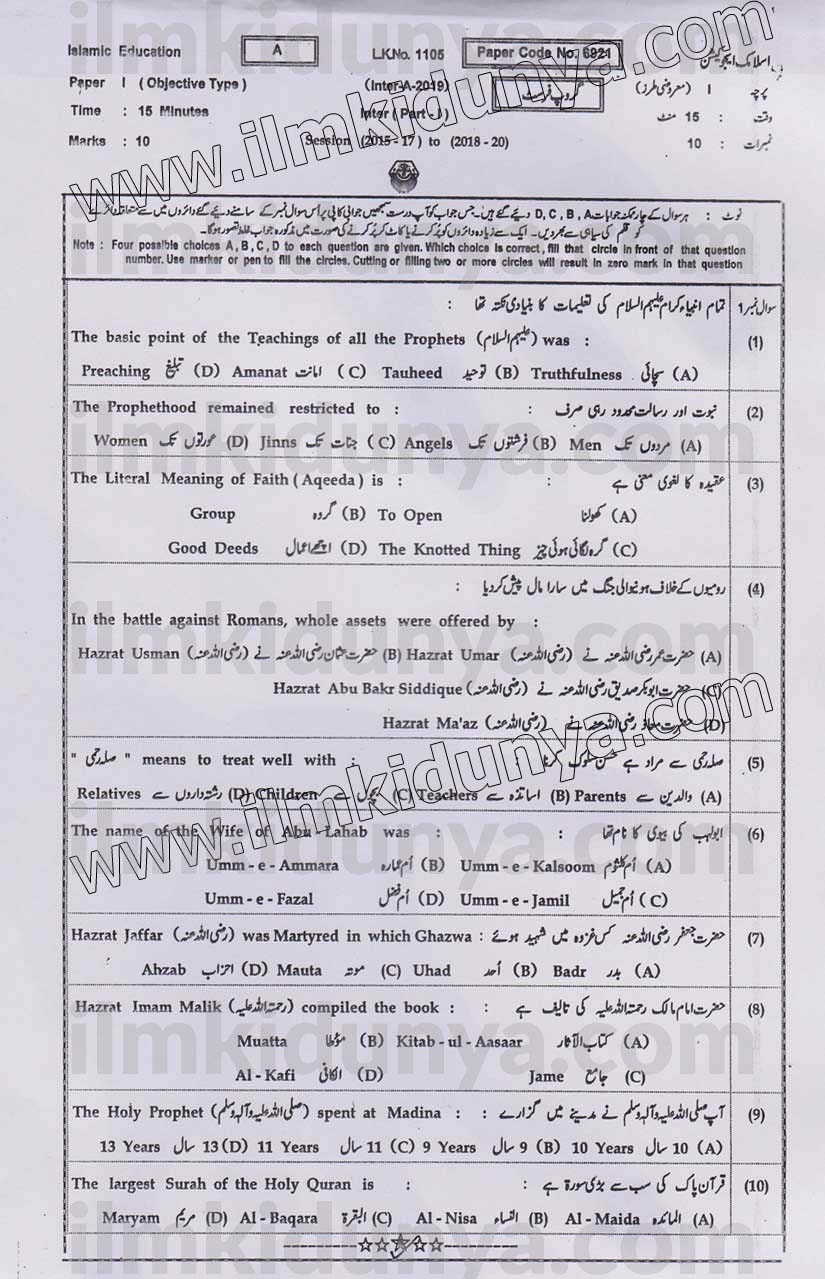 Islamic Education A L.K.No. 1105 Paper Code No. 6921 اسلامک ایجوکیشن
Paper I ( Objective Type ) (Inter-A-2019) گروپ فرسٹ پرچہ I (معروضی طرز)
Time : 15 Minutes Inter ( Part - I ) وقت : 15 منٹ
Marks : 10 Session (2015 - 17) to (2018 - 20) نمبرات : 10
نوٹ : ہر سوال کے چار ممکنہ جوابات D, C, B, A دیئے گئے ہیں۔ جس جواب کو آپ درست سمجھیں جوابی کاپی پر اُس سوال نمبر کے سامنے دیئے گئے دائروں میں سے متعلقہ دائرے
کو قلم کی سیاہی سے بھر دیں۔ ایک سے زیادہ دائروں کو پُر کرنے یا کاٹ کر پُر کرنے کی صورت میں مذکورہ جواب غلط تصور ہوگا۔
Note : Four possible choices A, B, C, D to each question are given. Which choice is correct, fill that circle in front of that question
number. Use marker or pen to fill the circles. Cutting or filling two or more circles will result in zero mark in that question
سوال نمبر 1 تمام انبیاء کرام علیہم السلام کی تعلیمات کا بنیادی نکتہ تھا :
The basic point of the Teachings of all the Prophets (علیہم السلام) was : (1)
Preaching تبلیغ (D) Amanat امانت (C) Tauheed توحید (B) Truthfulness سچائی (A)
The Prophethood remained restricted to : نبوت اور رسالت محدود رہی صرف : (2)
Women عورتوں تک (D) Jinns جنات تک (C) Angels فرشتوں تک (B) Men مردوں تک (A)
The Literal Meaning of Faith ( Aqeeda ) is : عقیدہ کا لغوی معنی ہے : (3)
Group گروہ (B) To Open کھولنا (A)
Good Deeds اچھے اعمال (D) The Knotted Thing گرہ لگائی ہوئی چیز (C)
رومیوں کے خلاف ہونیوالی جنگ میں سارا مال پیش کر دیا : (4)
In the battle against Romans, whole assets were offered by :
Hazrat Usman (رضی اللہ عنہ) حضرت عثمان رضی اللہ عنہ نے (B) Hazrat Umar (رضی اللہ عنہ) حضرت عمر رضی اللہ عنہ نے (A)
Hazrat Abu Bakr Siddique (رضی اللہ عنہ) حضرت ابوبکر صدیق رضی اللہ عنہ نے (C)
Hazrat Ma'az (رضی اللہ عنہ) حضرت معاذ رضی اللہ عنہ نے (D)
" صلہ رحمی " means to treat well with : صلہ رحمی سے مراد ہے حسن سلوک کرنا : (5)
Relatives رشتہ داروں سے (D) Children بچوں سے (C) Teachers اساتذہ سے (B) Parents والدین سے (A)
The name of the Wife of Abu - Lahab was : ابولہب کی بیوی کا نام تھا : (6)
Umm - e - Ammara اُم عمارہ (B) Umm - e - Kalsoom اُم کلثوم (A)
Umm - e - Fazal اُم فضل (D) Umm - e - Jamil اُم جمیل (C)
Hazrat Jaffar (رضی اللہ عنہ) was Martyred in which Ghazwa : حضرت جعفر رضی اللہ عنہ کس غزوہ میں شہید ہوئے : (7)
Ahzab احزاب (D) Mauta موتہ (C) Uhad اُحد (B) Badr بدر (A)
Hazrat Imam Malik (رحمتہ اللہ علیہ) compiled the book : حضرت امام مالک رحمتہ اللہ علیہ کی تالیف ہے : (8)
Muatta مؤطا (B) Kitab - ul - Aasaar کتاب الآثار (A)
Al - Kafi الکافی (D) Jame جامع (C)
The Holy Prophet (صلی اللہ علیہ وآلہ وسلم) spent at Madina : آپ صلی اللہ علیہ وآلہ وسلم نے مدینے میں گزارے : (9)
13 Years 13 سال (D) 11 Years 11 سال (C) 9 Years 9 سال (B) 10 Years 10 سال (A)
The largest Surah of the Holy Quran is : قرآن پاک کی سب سے بڑی سورۃ ہے : (10)
Maryam مریم (D) Al - Baqara البقرۃ (C) Al - Nisa النساء (B) Al - Maida المائدہ (A)
www.ilmkidunya.com
www.ilmkidunya.com
ilmkidunya.com
ilmkidunya.com
ilmkidunya.com
ilmkidunya.com
ilmkidunya.com
ilmkidunya.com